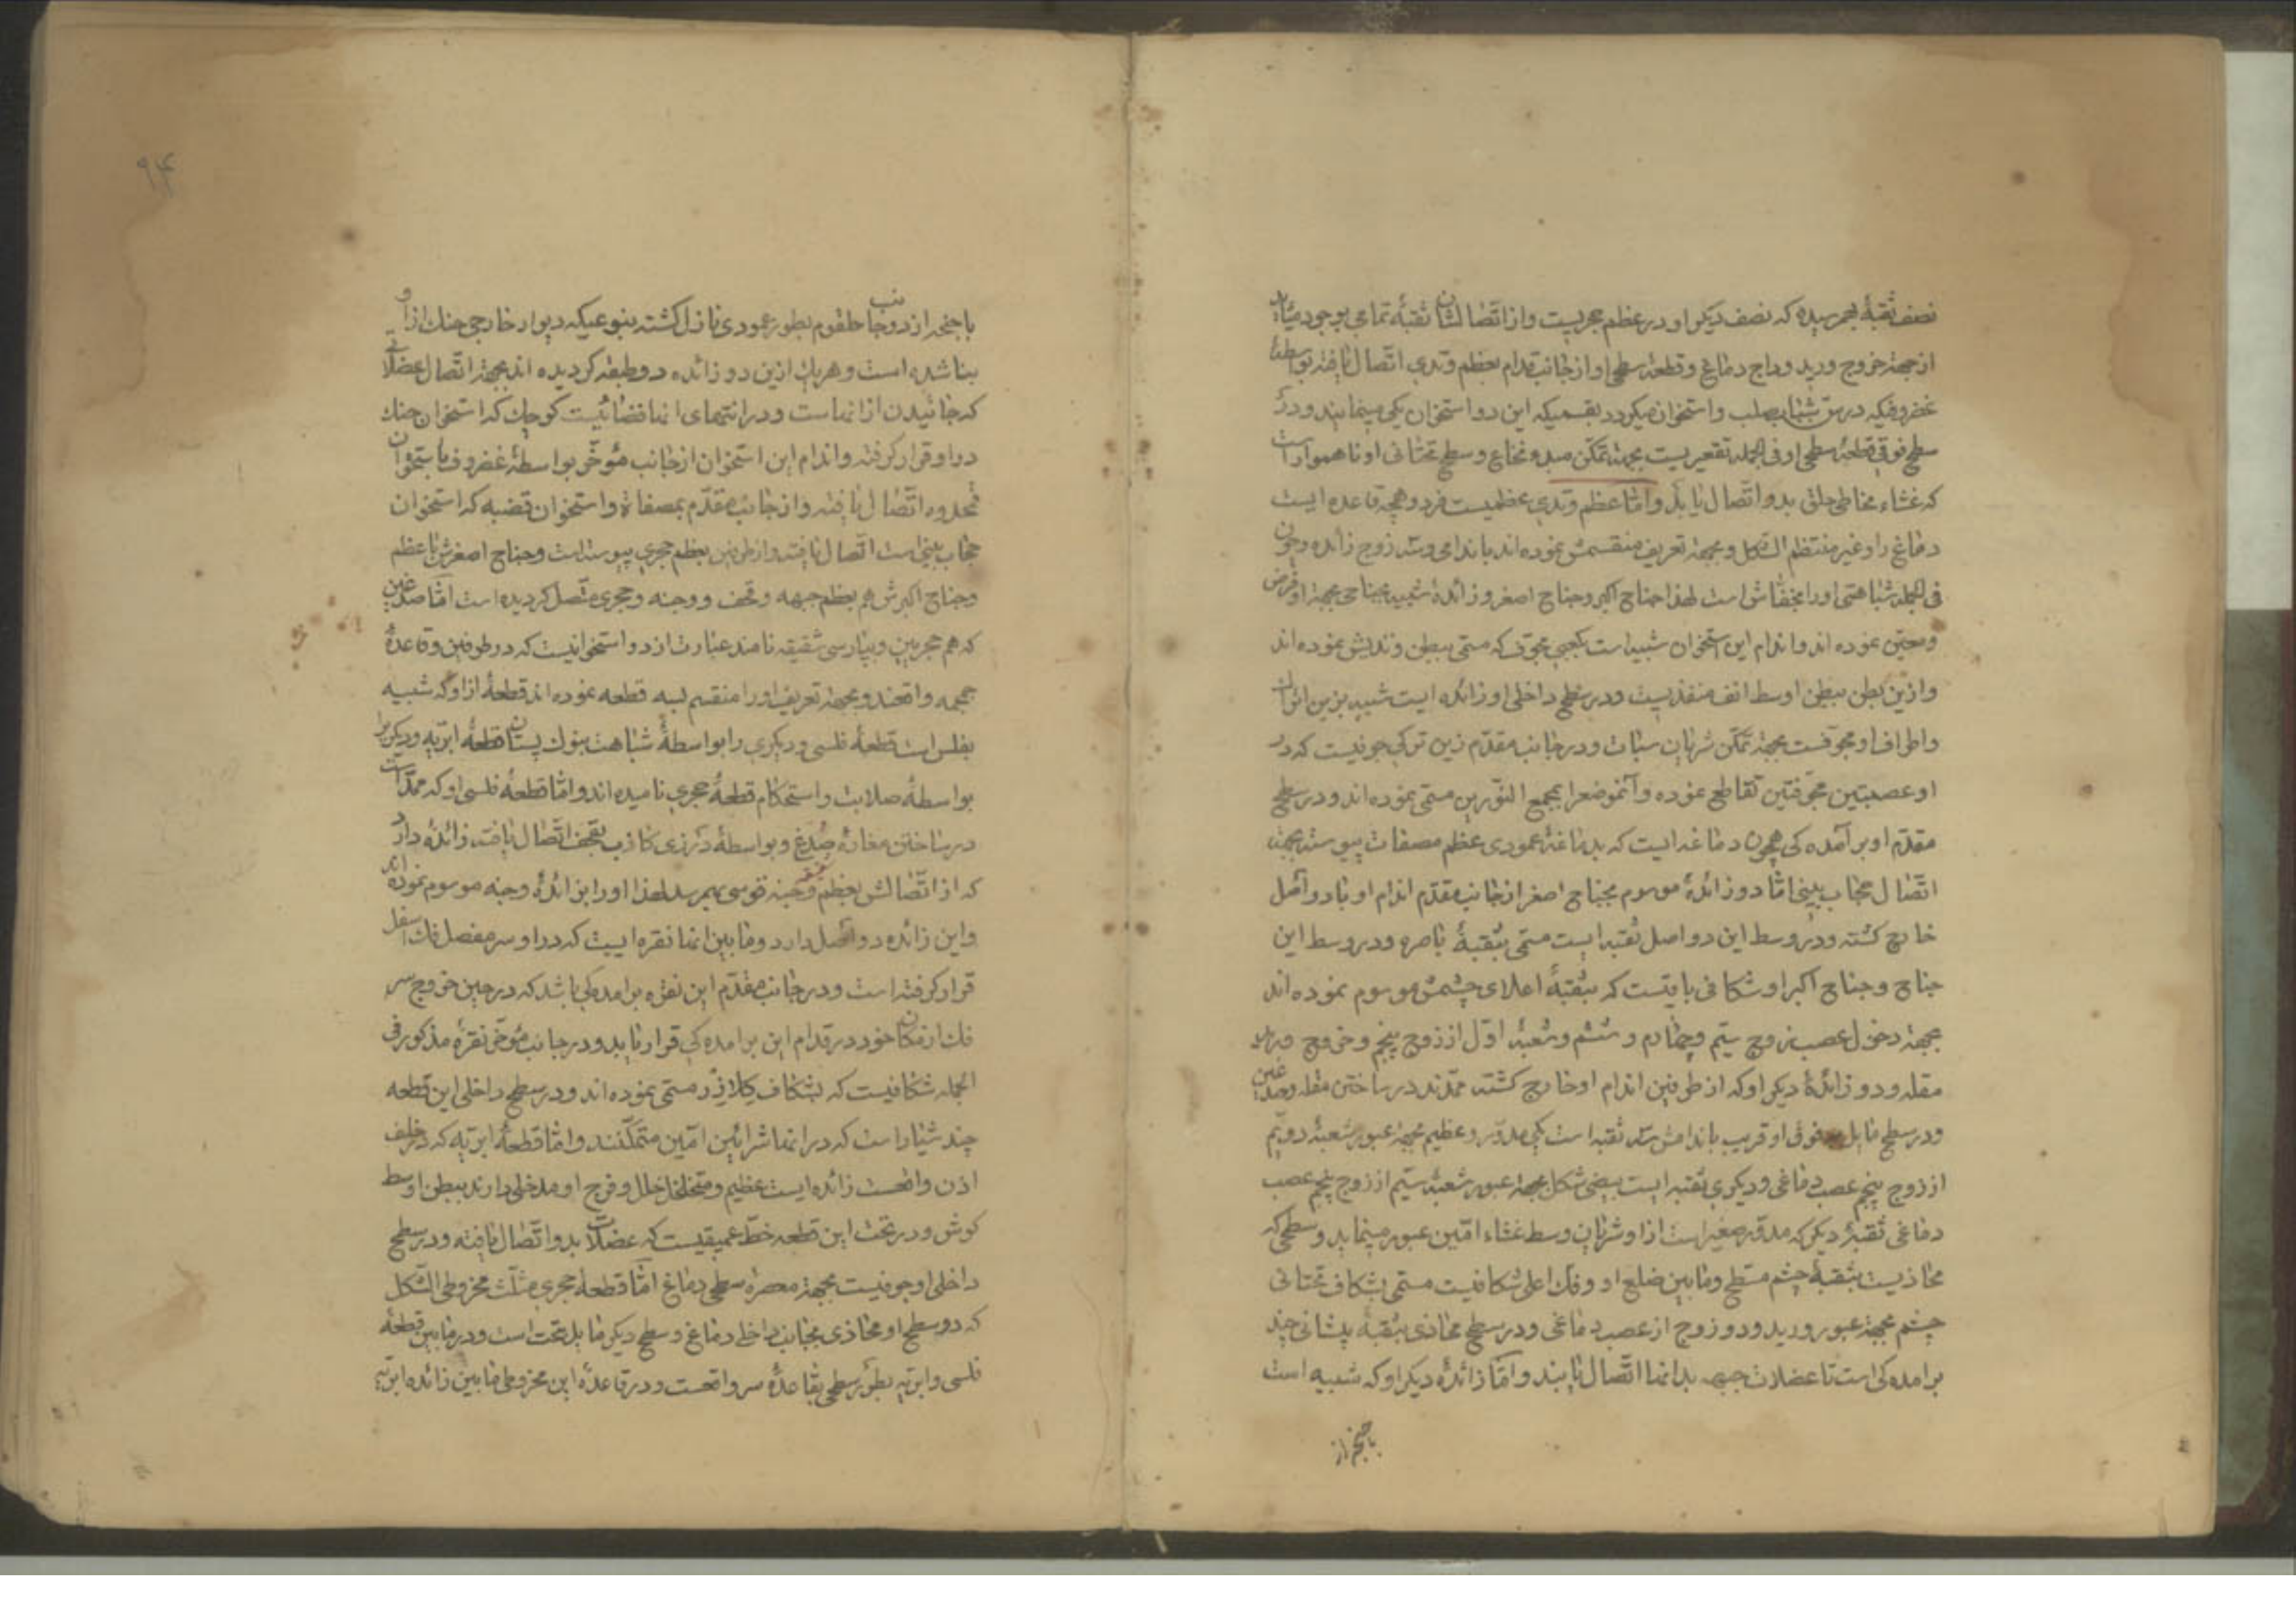 نصف ثقبهٔ بهمرسیده که نصف دیکر او در عظم حجریست و از اتّصالشان ثقبهٔ تمامی بوجود میآید
از جهة خروج ورید وداج دماغ و قطعهٔ سطحی او از جانب قدام بعظم وتدی اتّصال یافته بواسطهٔ
غضروفیکه در سنّ شباب صلب و استخوان میکردد بقسمیکه این دو استخوان یکی مینمایند و در
سطح فوقی قطعهٔ سطحی او فی الجمله تقعیریست بجهة تمکّن مبدء نخاع و سطح تحتانی او ناهموار است
که غشاء مخاطی حلق بدو اتّصال یابد و امّا عظم وتدی عظمیست فرد و همچه قاعده ایست
دماغ را و غیر منتظم الشّکل و بجهة تعریف منقسمش نموده اند باندامی و سه زوج زائده و چون
فی الجمله شباهتی او را بخفّاش است لهذا جناح اکبر و جناح اصغر و زائدهٔ شبیه بجناحی بجهة او فرض
و معیّن نموده اند و اندام این استخوان شبیه است بکعبی مجوّف که مسمّی ببطن وتدیش نموده اند
و ازین بطن ببطن اوسط انف منفذیست و در سطح داخلی او زائده ایست شبیه بزین اتراک
و اطراف او مجوّفست بجهة تمکّن شریان سبات و در جانب مقدّم زین ترکی جوفیست که در
او عصبتین مجوّفتین تقاطع نموده و آنموضع را بمجمع النّورین مسمّی نموده اند و در سطح
مقدّم او برآمده کی همچون دماغه ایست که بدماغهٔ عمودی عظم مصفات پیوسته بجهة
اتّصال حجاب بینی امّا دو زائدهٔ موسوم بجناح اصغر از جانب مقدّم اندام او با دو اصل
خارج کشته و در وسط این دو اصل ثقبه ایست مسمّی بثقبهٔ باصره و در وسط این
جناح و جناح اکبر او شکافی باقیست که بثقبهٔ اعلای چشمش موسوم نموده اند
بجهة دخول عصب زوج سیّم و چهارم و ششم و شعبهٔ اوّل از زوج پنجم و خروج ورید
مقله و دو زائدهٔ دیکر او که از طرفین اندام او خارج کشته ممدّند در ساختن مقله و صدغین
و در سطح مایل بفوق او قریب باندامش سه ثقبه است یکی مدوّر و عظیم بجهة عبور شعبهٔ دویّم
از زوج پنجم عصب دماغی و دیکری ثقبه ایست بیضی شکل بجهة عبور شعبهٔ سیّم از زوج پنجم عصب
دماغی ثقبهٔ دیکر که مدوّر صغیر است از او شریان وسط غشاء امّین عبور مینماید و سطحی که
محاذیست بثقبهٔ چشم مسطّح و مابین ضلع او و فک اعلی شکافیست مسمّی بشکاف تحتانی
چشم بجهة عبور ورید و دو زوج از عصب دماغی و در سطح محاذی بثقبهٔ پیشانی چند
برامده کی است تا عضلات جبهه بدانها اتّصال یابند و امّا زائدهٔ دیکر او که شبیه است
باجنحه از
۹۴
باجنحه از دو جانب حلقوم بطور عمودی نازل کشته بنوعیکه دیوار خارجی حنک از او
بنا شده است و هریک ازین دو زائده دو طبقه کردیده اند بجهة اتّصال عضلاتی
که خائیدن از انهاست و در انتهای انها فضائیست کوچک که استخوان حنک
در او قرار کرفته و اندام این استخوان از جانب مؤخّر بواسطهٔ غضروف باستخوان
قمحدوه اتّصال یافته و از جانب مقدّم بمصفاة و استخوان قصبه که استخوان
حجاب بینی است اتّصال یافته و از طرفین بعظم حجری پیوسته است و جناح اصغرش با عظم
و جناح اکبرش هم بعظم جبهه و قحف و وجنه و حجری متّصل کردیده است امّا صدغین
که هم حجریین و بپارسی شقیقه نامند عبارت از دو استخوانیست که در طرفین و قاعدهٔ
جمجمه واقعند و بجهة تعریف او را منقسم بسه قطعه نموده اند قطعهٔ از او که شبیه
بفلس است قطعهٔ فلسی و دیکری را بواسطهٔ شباهت بنوک پستان قطعهٔ ابریّه و دیکری را
بواسطهٔ صلابت و استحکام قطعهٔ حجری نامیده اند و امّا قطعهٔ فلسی او که ممدّ است
در ساختن مغاک صدغ و بواسطهٔ درزی کاذب بقحف اتّصال یافته زائدهٔ دارد
که از اتّصالش بعظم وجنه قوسی بهمرسد لهذا او را بزائدهٔ وجنه موسوم نموده اند
و این زائده دو اصل دارد و مابین انها نقره ایست که در او سر مفصل فک اسفل
قرار کرفته است و در جانب مقدّم این نقره برامده کی باشد که در حین خروج سر
فک از مکان خود در قدام این برامده کی قرار یابد و در جانب مؤخّر نقرهٔ مذکور فی
الجمله شکافیست که بشکاف کلازر مسمّی نموده اند و در سطح داخلی این قطعه
چند شیار است که در انها شرائین امّین متمکّنند و امّا قطعهٔ ابریّه که در خلف
اذن واقعست زائده ایست عظیم و متخلخل خلل و فرج او مدخلی دارند ببطن اوسط
کوش و در تحت این قطعه خطّ عمیقیست که عضلات بدو اتّصال یافته و در سطح
داخلی او جوفیست بجهة معصرهٔ سطحی دماغ امّا قطعهٔ حجری مثلّث مخروطی الشّکل
که دو سطح او محاذی بجانب داخلی دماغ و سطح دیکر مایل بتحت است و در مابین قطعهٔ
فلسی و ابریّه بطور سطحی بقاعدهٔ سر واقعست و در قاعدهٔ این مخروطی مابین زائدهٔ ابریّه